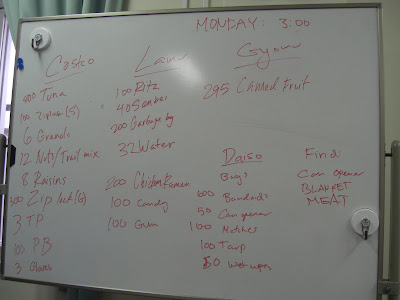 MONDAY: 3:00
Costco
400 Tuna
100 Ziplocs (S)
6 Granola
12 Nuts/Trail mix
8 Raisins
300 Ziplock (G)
3 TP
100 PB
3 Gloves
Law
100 Ritz
40 Senbei
200 Garbage bg
32 Water
200 Chicken Ramen
100 Candy
100 Gum
Gyomu
295 Canned Fruit
Daiso
Bags
600 Bandaids
50 Can opener
100 Matches
100 Tarp
50 Wet wipes
Find
Can opener
BLANKET
MEAT